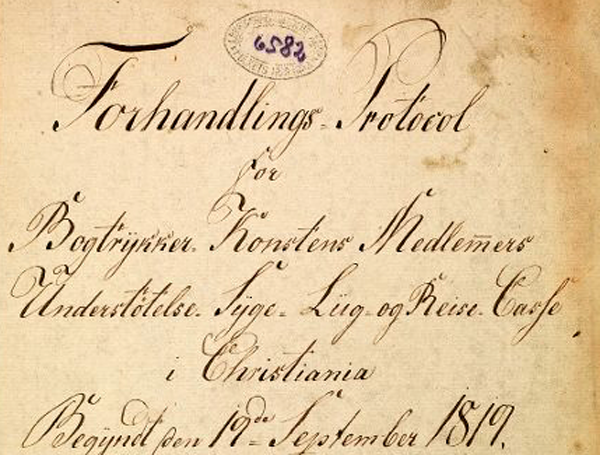 6582
Forhandlings-Protocol
for
Bogtrykker-Konstens Medlem̅ers
Understötelse-Syge-Liig-og Reise-Casse
i Christiania
Begyndt den 19de September 1819.